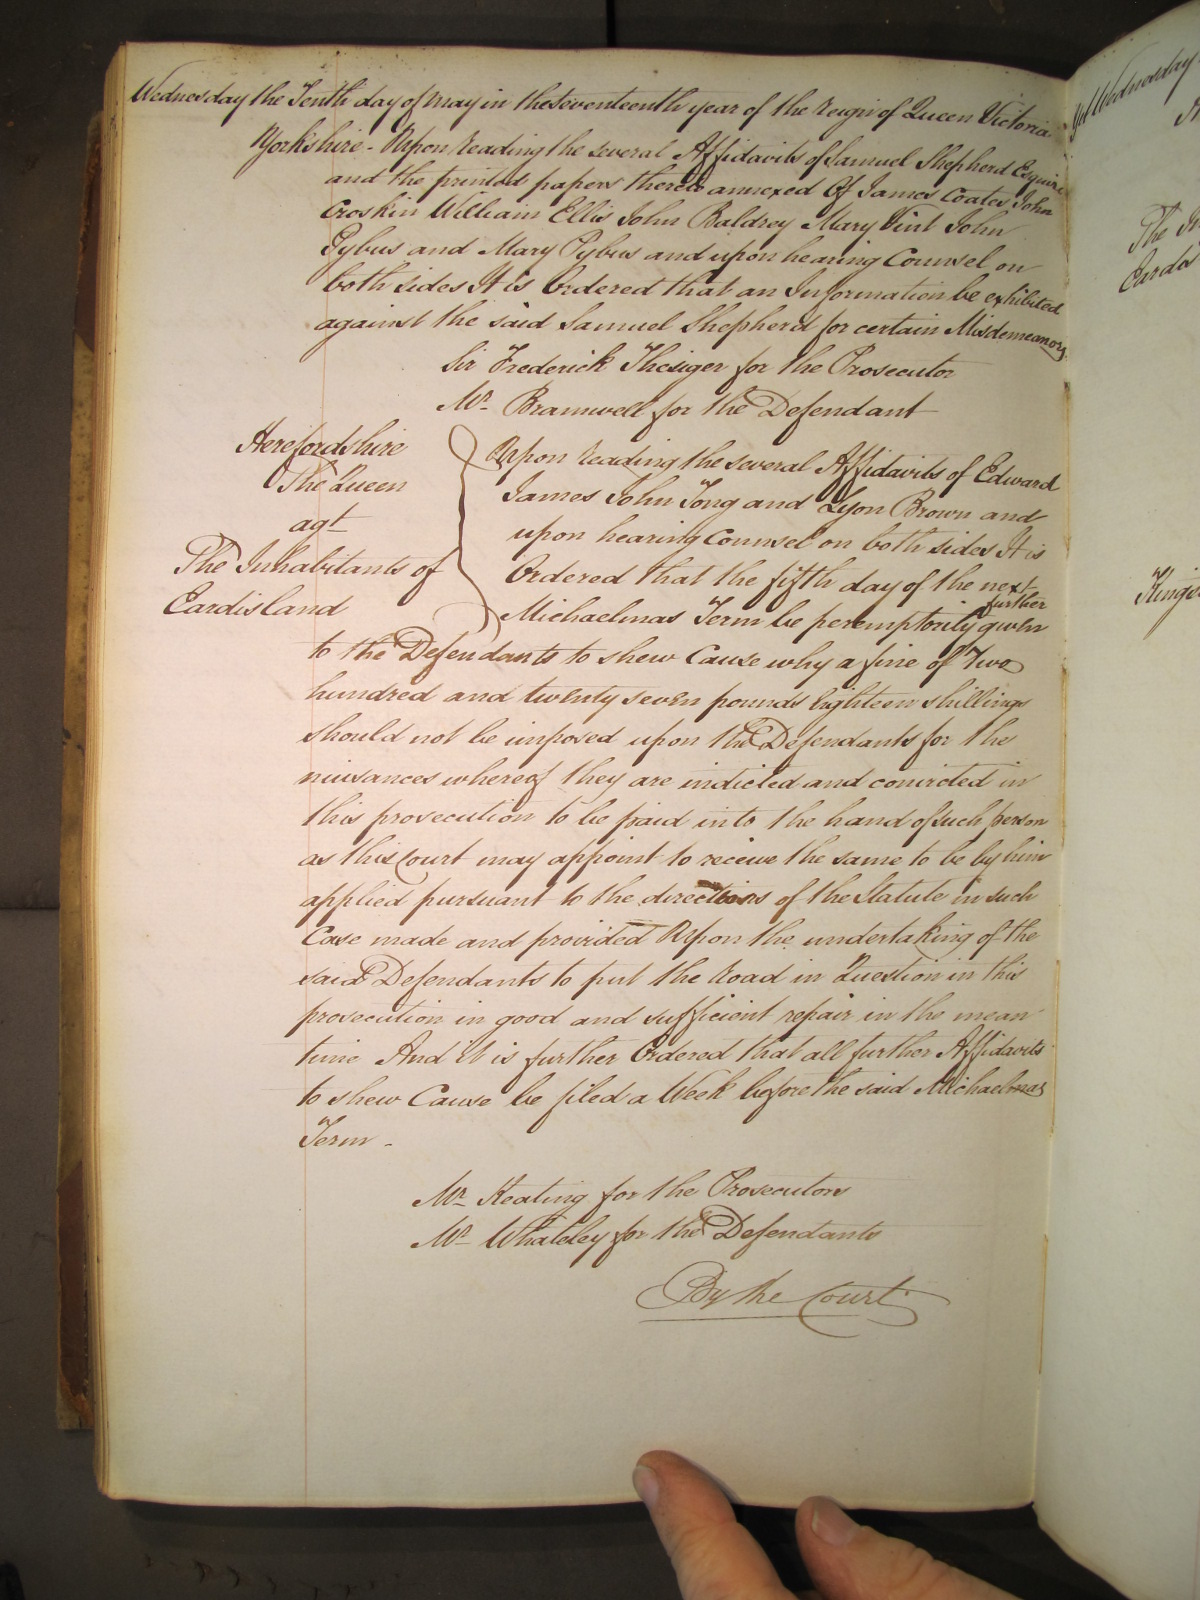 Wednesday the Tenth day of May in the Seventeenth year of the Reign of Queen Victoria
Yorkshire - Upon reading the several Affidavits of Samuel Shepherd Esquire
and the printed papers thereto annexed Of James Coates John
Croskin William Ellis John Baldrey Mary Vint John
Pybus and Mary Pybus and upon hearing Counsel on
both sides It is Ordered that an Information be exhibited
against the said Samuel Shepherd for certain Misdemeanors
Sir Frederick Thesiger for the Prosecutor
Mr. Bramwell for the Defendant
Herefordshire
The Queen
agt
The Inhabitants of
Eardisland
Upon reading the several Affidavits of Edward
James John Tong and Lyon Brown and
upon hearing Counsel on both sides It is
Ordered that the fifth day of the next
Michaelmas Term be peremptorily further given
to the Defendants to shew Cause why a fine of Two
hundred and twenty seven pounds Eighteen shillings
should not be imposed upon the Defendants for the
nuisances whereof they are indicted and convicted in
this prosecution to be paid into the hand of such person
as this Court may appoint to receive the same to be by him
applied pursuant to the directions of the Statute in such
Case made and provided Upon the undertaking of the
said Defendants to put the Road in Question in this
prosecution in good and sufficient repair in the mean
time And it is further Ordered that all further Affidavits
to shew Cause be filed a Week before the said Michaelmas
Term -
Mr. Keating for the Prosecutors
Mr. Whateley for the Defendants
By the Court
Yet Wednesday
The In
Eardis
Kings